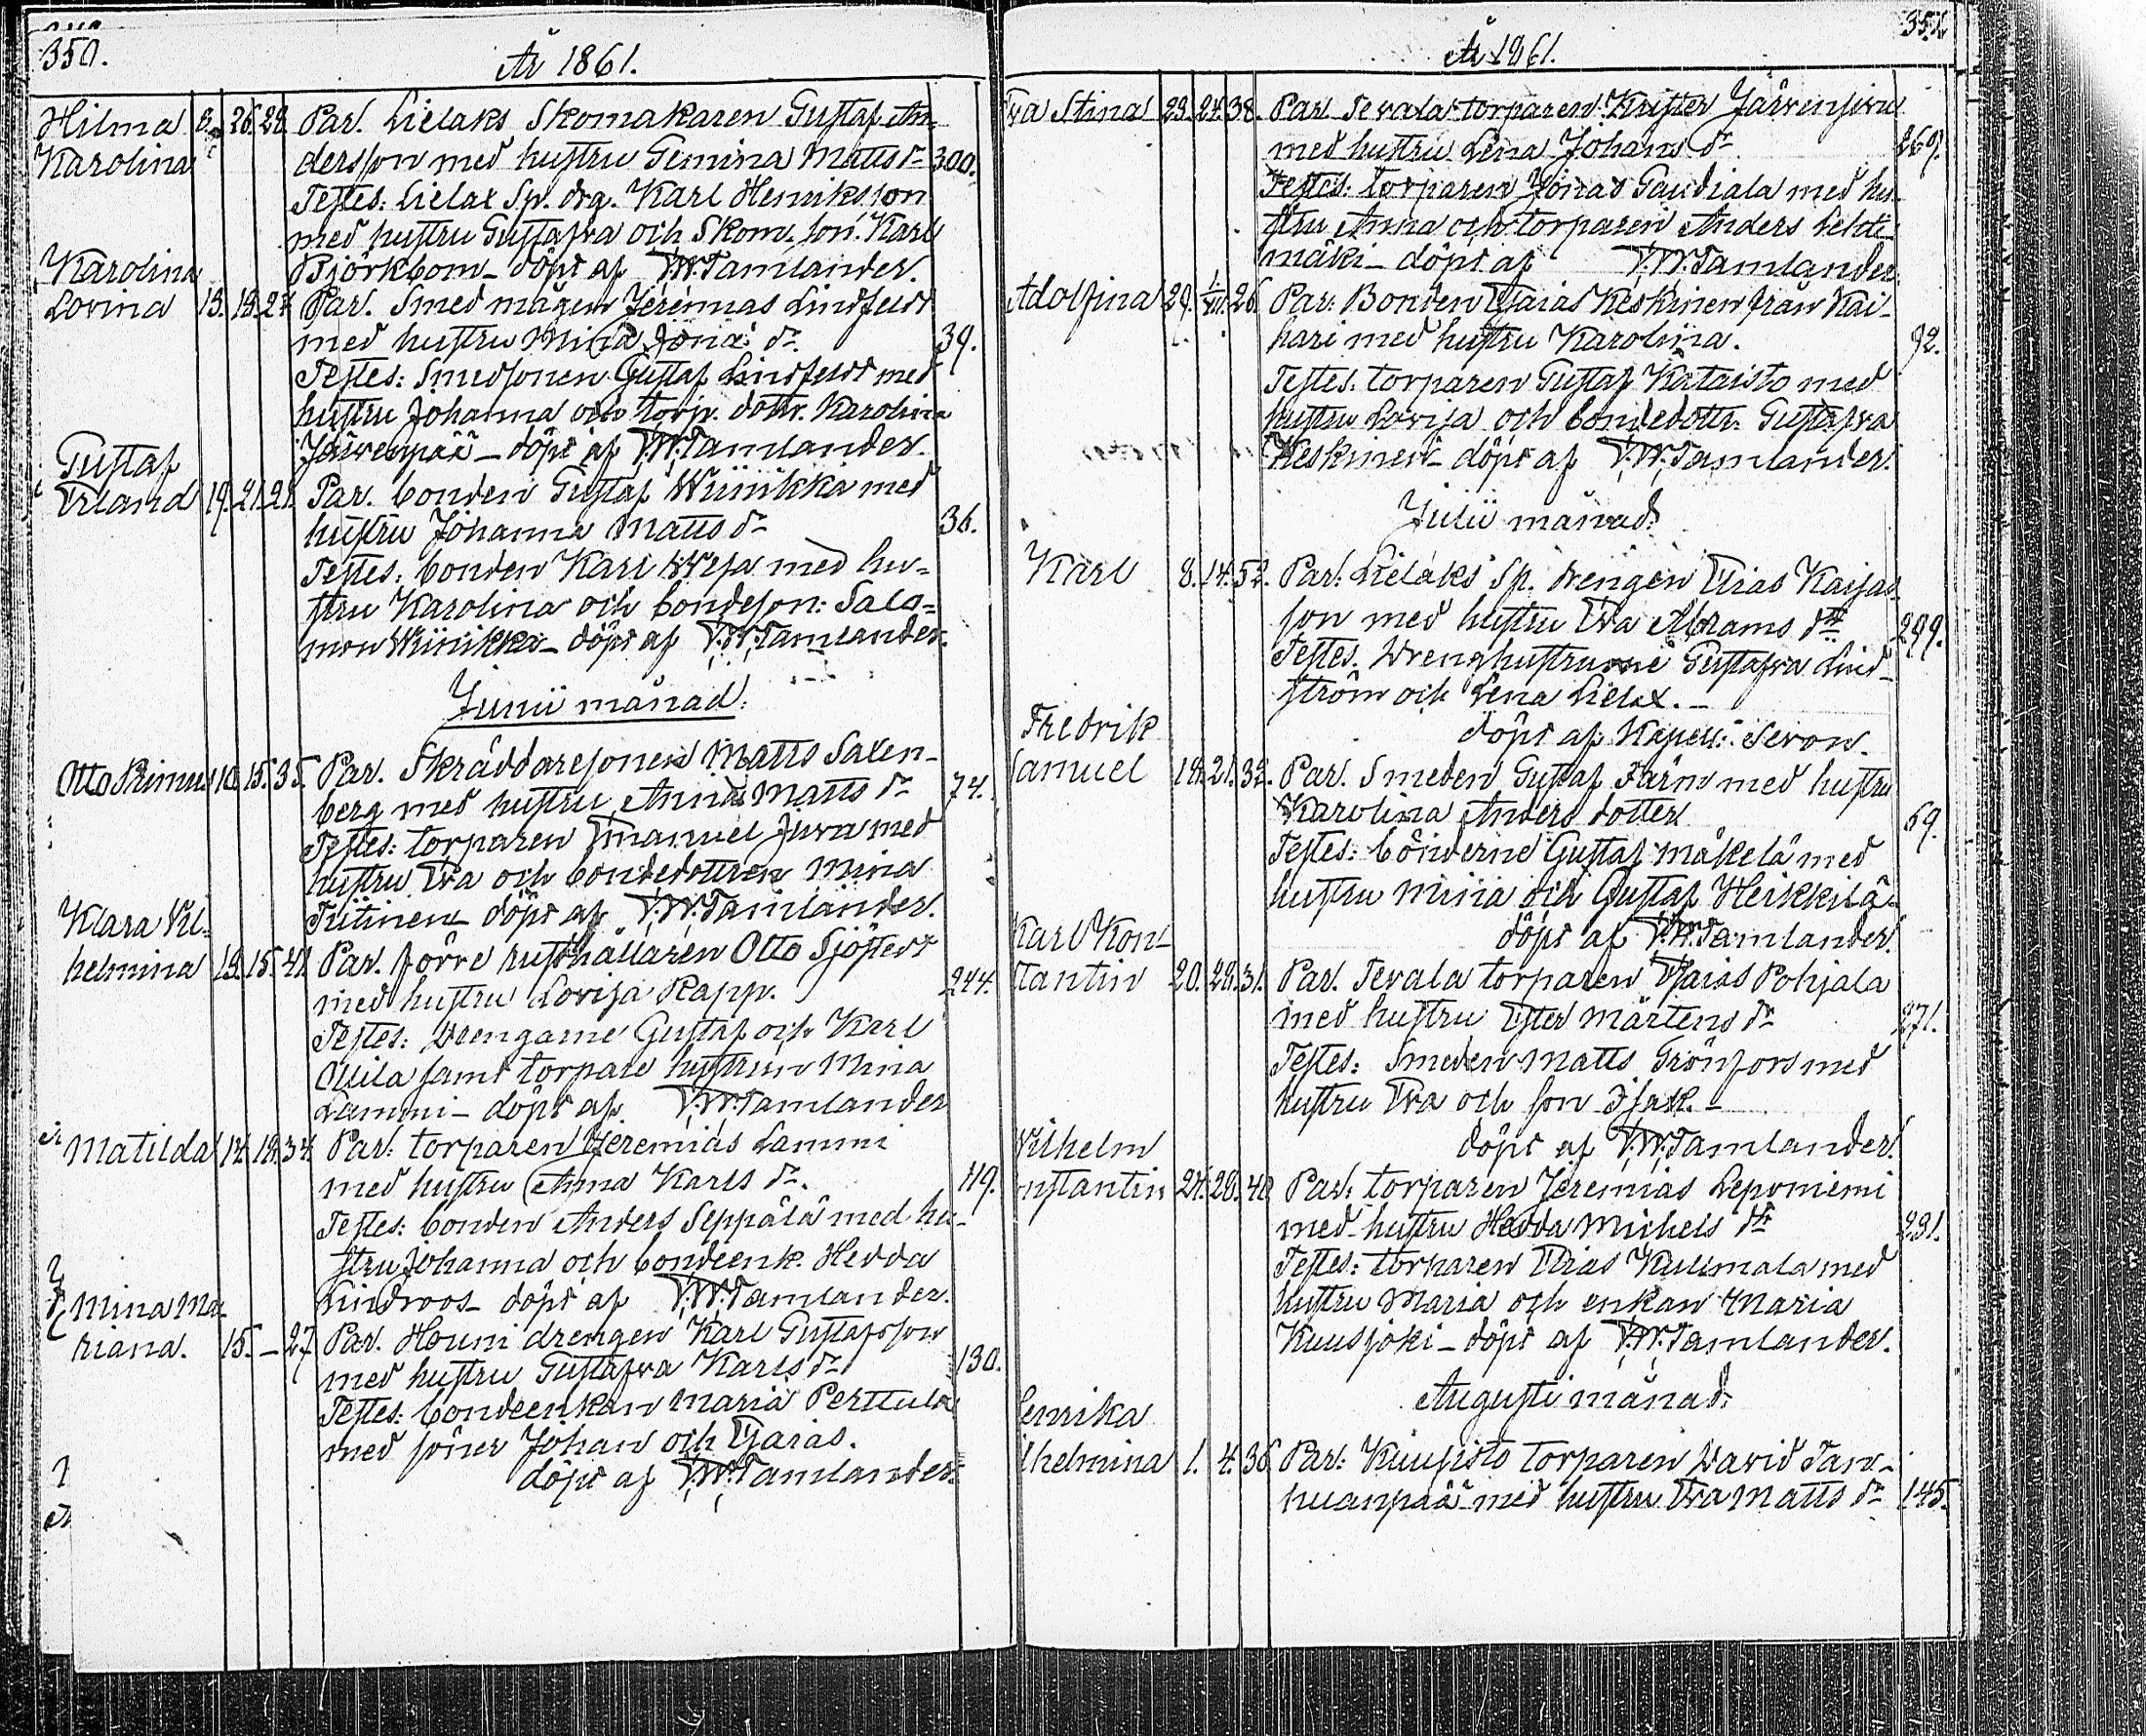 350.
År 1861.
Hilma 8. 26. 28. Par. Lielaks Skomakaren Gustaf An-
Karolina dersson med hustru Gemina Matts dr 300.
Testes: Lielax Sp. drg. Karl Henriksson
med hustru Gustafva och Skom. son. Karl
Björkbom – döpt af F.W. Tamlander.
Karolina
Lovina 13. 19. 27. Par. Smed mågen Jeremias Lindfeldt
med hustru Mina Jona: dr. 39.
Testes: Smedsonen Gustaf Lindfeldt med
hustru Johanna och torp. dottr. Karolina
Järvenpää – döpt af F.W. Tamlander.
Gustaf
Erland 19. 21. 21. Par. bonden Gustaf Wiinikka med
hustru Johanna Matts dr 36.
Testes: bonden Karl Wesa med hu-
stru Karolina och bondeson: Salo-
mon Wiinikka – döpt af F.W. Tamlander.
Junii månad.
Otto Primus 10. 15. 35. Par. Skräddaresonen Matts Salen-
berg med hustru Anna Matts dr 74.
Testes: torparen Emanuel Juva med
hustru Eva och bondedottren Mina
Tiitinen – döpt af F.W. Tamlander.
Klara Vil-
helmina 13. 15. 41. Par. förre rusthållaren Otto Sjöstedt
med hustru Lovisa Rapp. 244.
Testes: Drengarne Gustaf och Karl
Ollila samt torpare hustrun Mina
Lammi – döpt af F.W. Tamlander
Matilda 14. 18. 34. Par: torparen Jeremias Lammi
med hustru Anna Karls dr. 119.
Testes: bonden Anders Seppälä med hu-
stru Johanna och bondeenk. Hedda
Lindroos – döpt af F.W. Tamlander.
Mina Ma-
riana. 15. – 27 Par. Houni drengen Karl Gustafsson
med hustru Gustafva Karls dr 130.
Testes: bondeenkan Maria Perttula
med söner Johan och Esaias.
döpt af F.W. Tamlander.
351.
År 1861.
Eva Stina 23. 24. 38. Par. Tevala torparen Krister Järvensivu
med hustru Lena Johans dr 269.
Testes: torparen Jonas Gaudiala med hu-
stru Anna och torparen Anders Lehti-
mäki – döpt af F.W. Tamlander.
Adolfina 29. 1/VII. 26. Par: Bonden Esaias Keskinen från Kai-
hari med hustru Karolina. 92.
Testes: torparen Gustaf Kataisto med
hustru Lovisa och bondedottr. Gustafva
Keskinen – döpt af F.W. Tamlander.
Julii månad.
Karl 8. 14. 52. Par: Lielaks Sp. drengen Elias Kaijas-
son med hustru Eva Abrams dtr 299.
Testes. Drenghustrurne Gustafva Lind-
ström och Lena Lielax. –
döpt af Kapell: Seron.
Fredrik
Samuel 18. 21. 32. Par. Smeden Gustaf Färm med hustru
Karolina Anders dotter 69.
Testes: bönderne Gustaf Mäkelä med
hustru Mina och Gustaf Heikkilä –
döpt af F.W. Tamlander.
Karl Kon-
stantin 20. 28. 31. Par. Tevala torparen Esaias Pohjala
med hustru Ester Mårtens dr 271.
Testes: Smeden Matts Grönfors med
hustru Eva och son Isak. –
döpt af F.W. Tamlander.
Vilhelm
onstantin 24. 28. 40. Par: torparen Jeremias Leponiemi
med hustru Hedda Michels dtr 231.
Testes: torparen Elias Kulmala med
hustru Maria och enkan Maria
Kuusjoki – döpt af F.W. Tamlander.
Augusti månad.
Henrika
ilhelmina 1. 4. 36. Par: Kuusisto torparen David Tan-
huanpää med hustru Eva Matts dr 145.